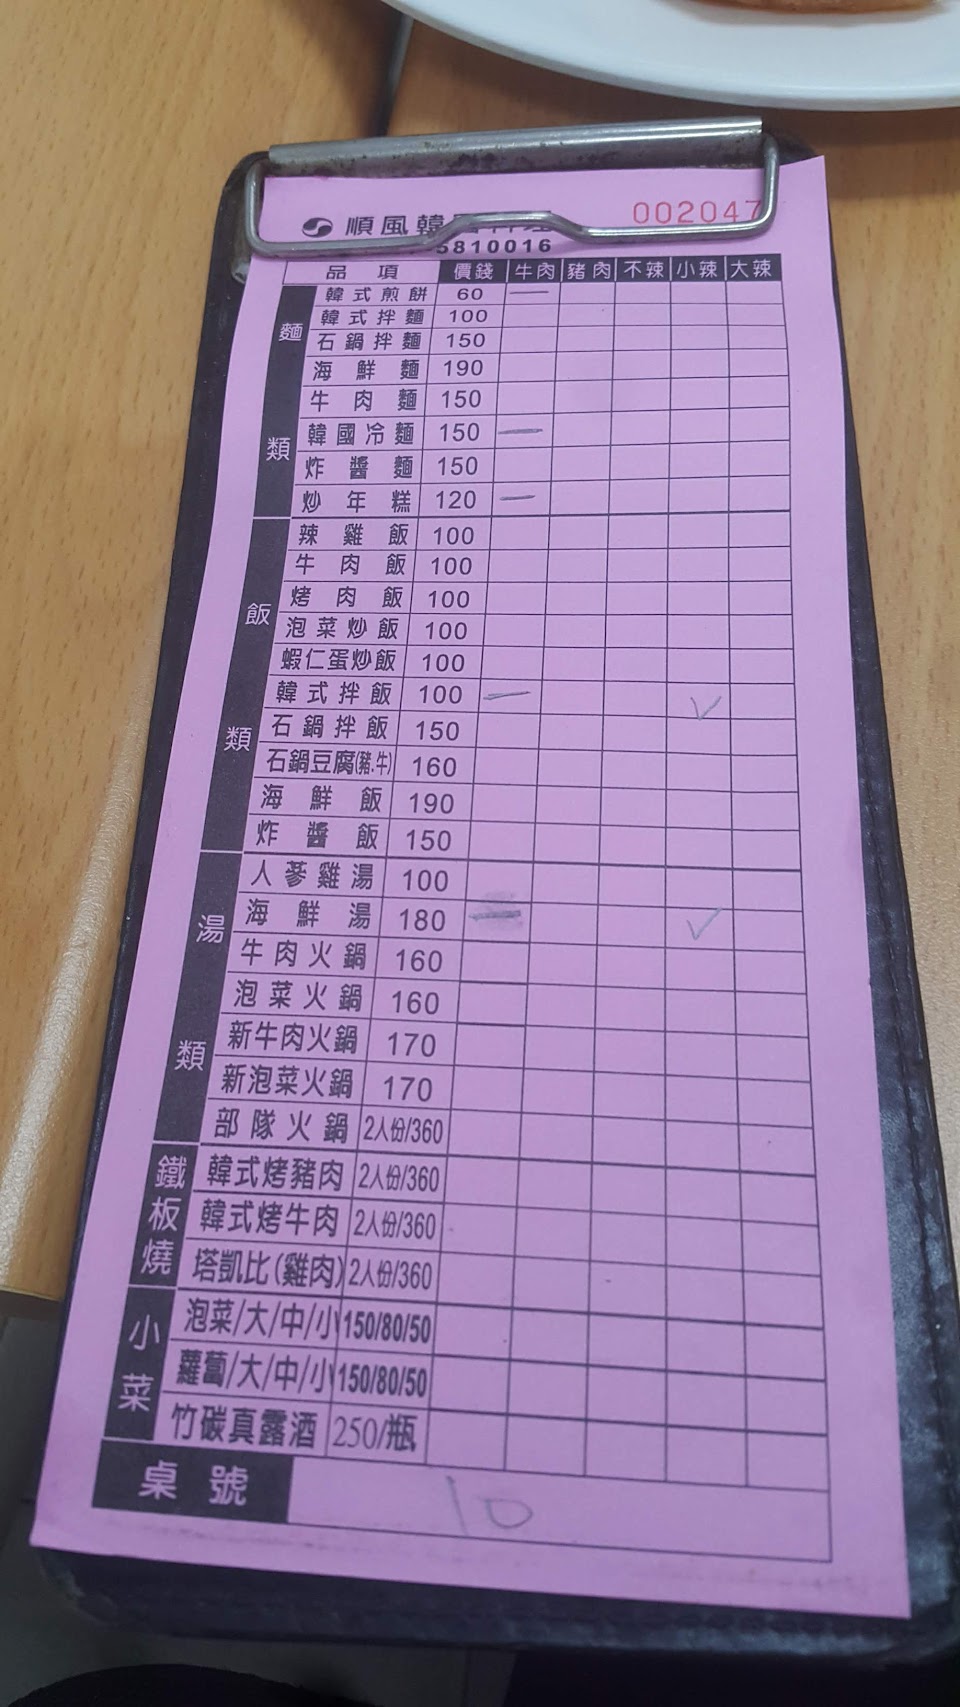 順風韓 002047
5810016
品項 價錢 牛肉 豬肉 不辣 小辣 大辣
麵類
韓式煎餅 60 一
韓式拌麵 100
石鍋拌麵 150
海鮮麵 190
牛肉麵 150
韓國冷麵 150 一
炸醬麵 150
炒年糕 120 一
飯類
辣雞飯 100
牛肉飯 100
烤肉飯 100
泡菜炒飯 100
蝦仁蛋炒飯 100
韓式拌飯 100 一 ✓
石鍋拌飯 150
石鍋豆腐(豬.牛) 160
海鮮飯 190
炸醬飯 150
湯類
人蔘雞湯 100
海鮮湯 180 一 ✓
牛肉火鍋 160
泡菜火鍋 160
新牛肉火鍋 170
新泡菜火鍋 170
部隊火鍋 2人份/360
鐵板燒
韓式烤豬肉 2人份/360
韓式烤牛肉 2人份/360
塔凱比(雞肉) 2人份/360
小菜
泡菜/大/中/小 150/80/50
蘿蔔/大/中/小 150/80/50
竹碳真露酒 250/瓶
桌號 10